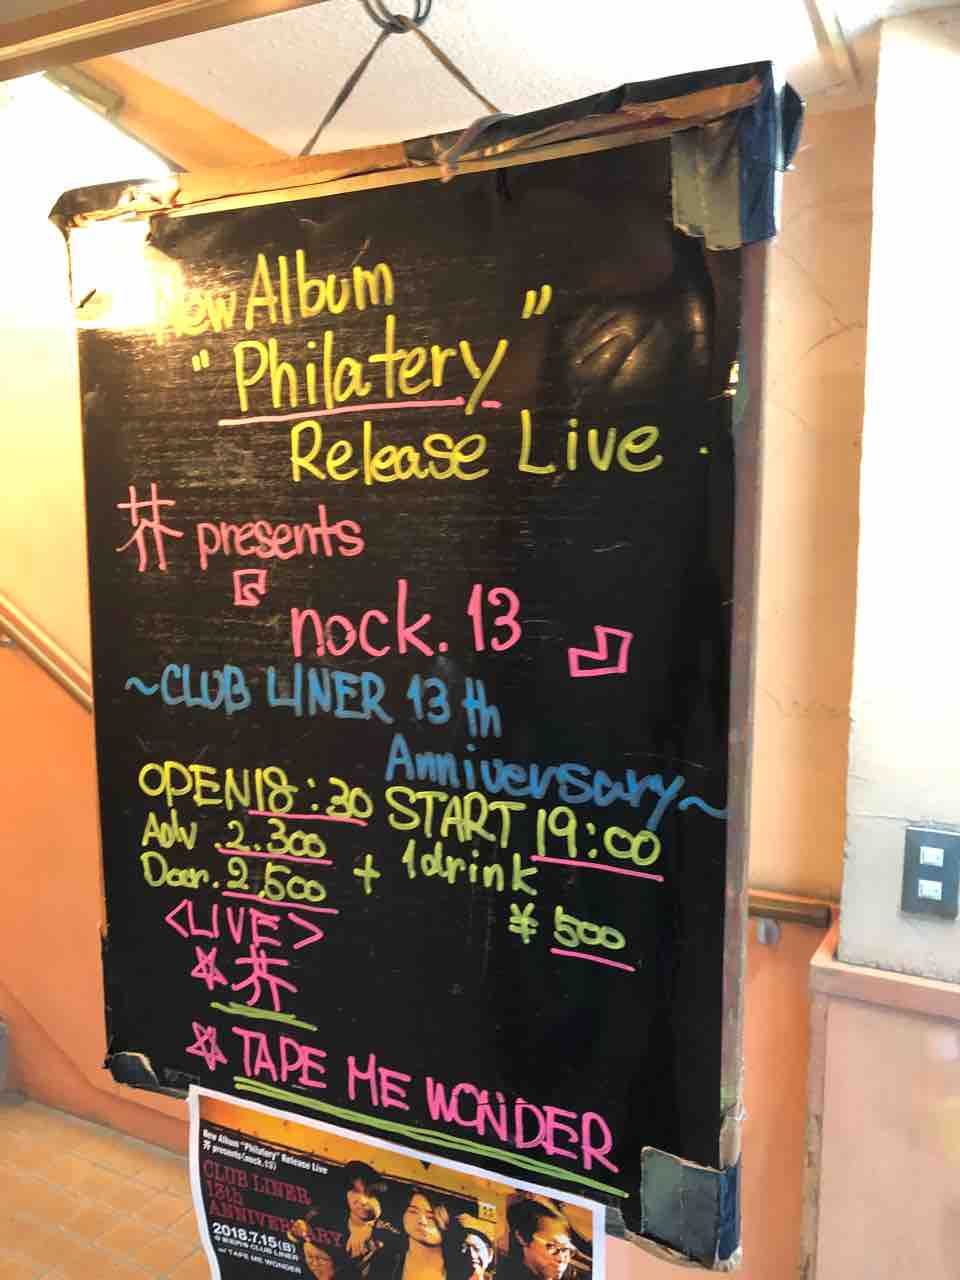 New Album
"Philatery"
Release Live
芥 presents
『nock.13』
~CLUB LINER 13th
Anniversary~
OPEN 18:30 START 19:00
Adv. 2.300
Door. 2,500 + 1drink
¥500
<LIVE>
☆芥
☆TAPE ME WONDER
New Album "Philatery" Release Live
芥 presents「nock.13」
CLUB LINER
13th
ANNIVERSARY
2018.7.15(日)
CLUB LINER
w/ TAPE ME WONDER